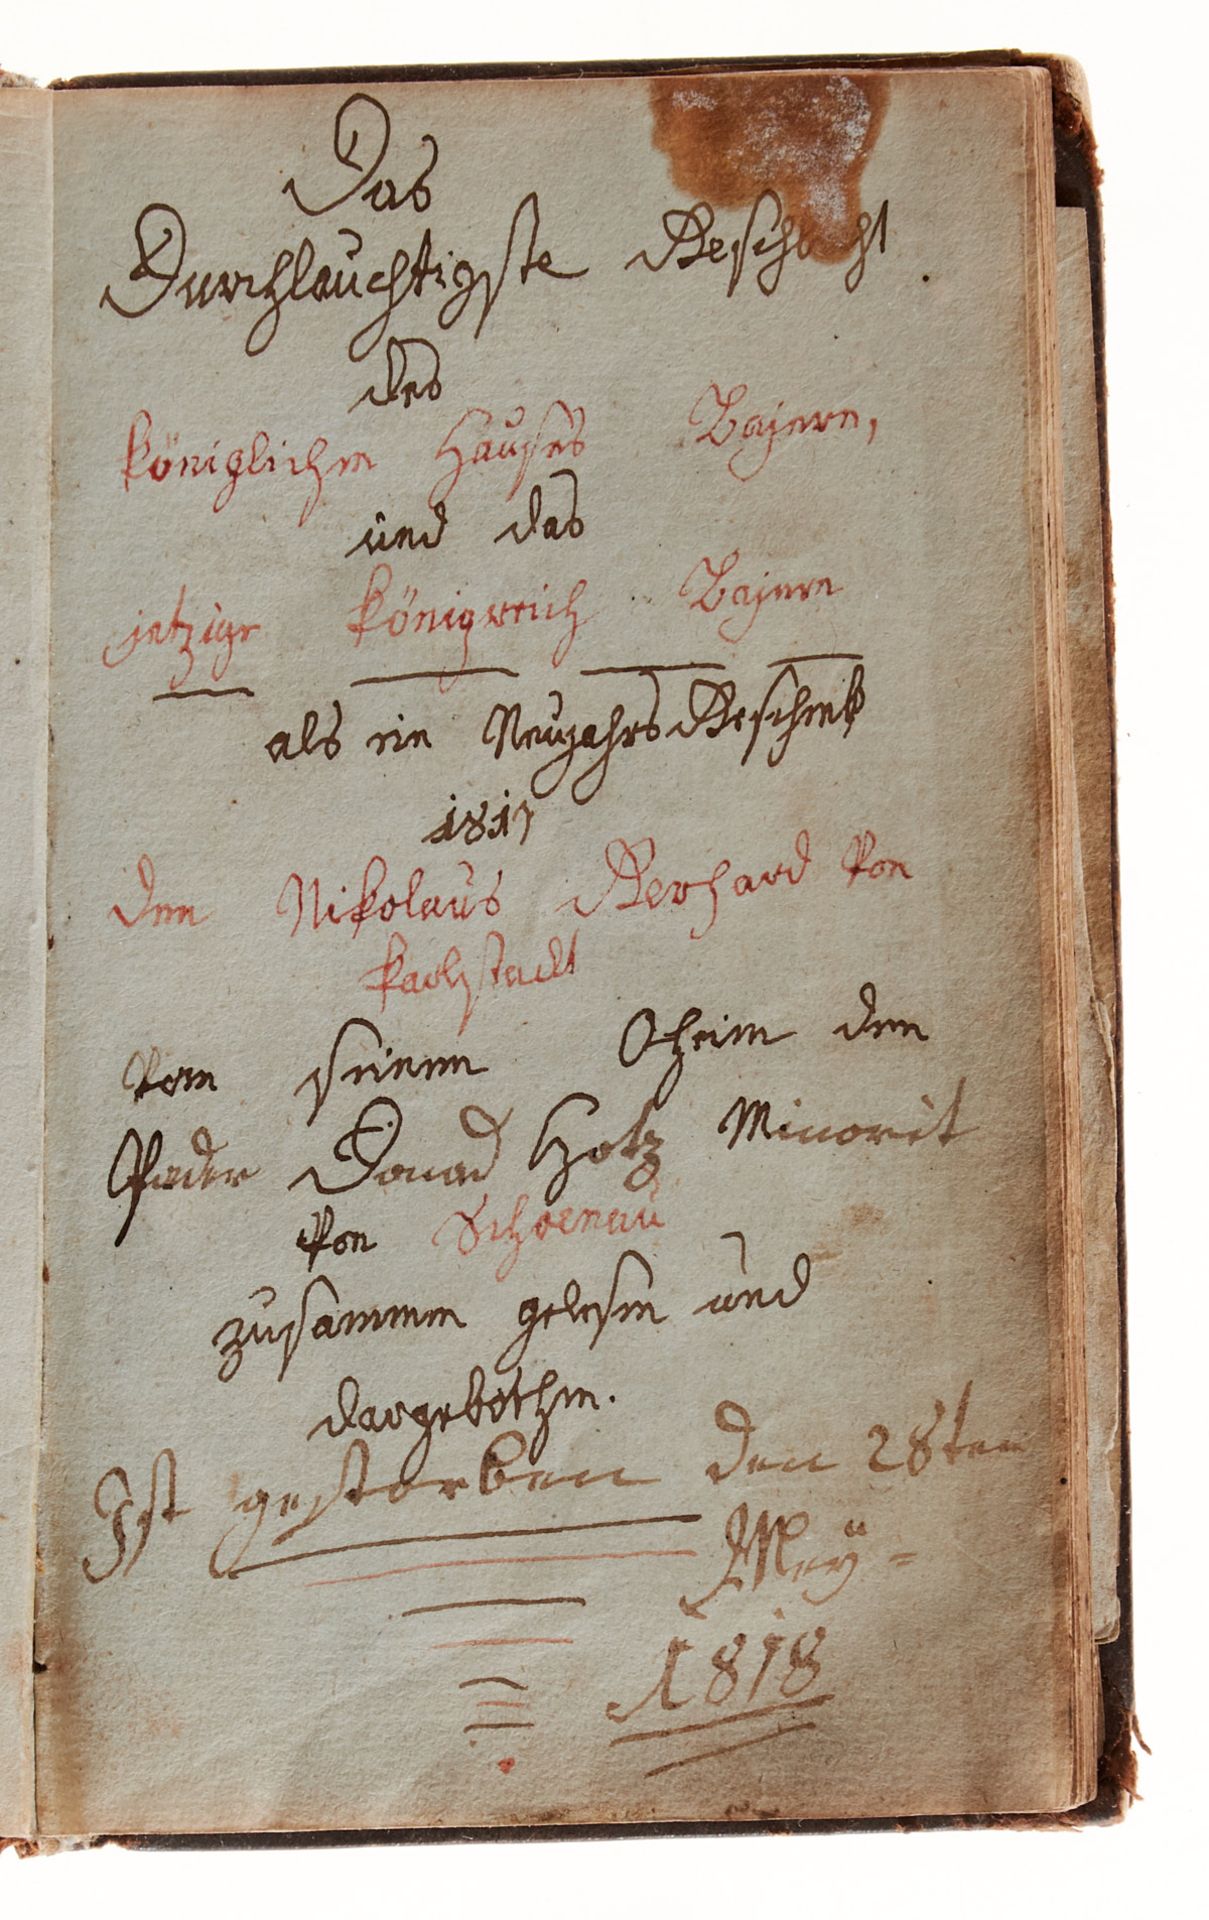 Das
Durchlauchtigste Geschlecht
des
königlichen Hauses Bajern,
und das
jetzige Königreich Bajern
als ein Neujahrs Geschenk
1817
den Nikolaus Gerhard von
Karlstadt
von seinem Oheim dem
Pader Donad Hotz Minorit
von Schoenau
zusammen gelesen und
dargebothen.
Ist gestorben den 28ten
Mey =
1818